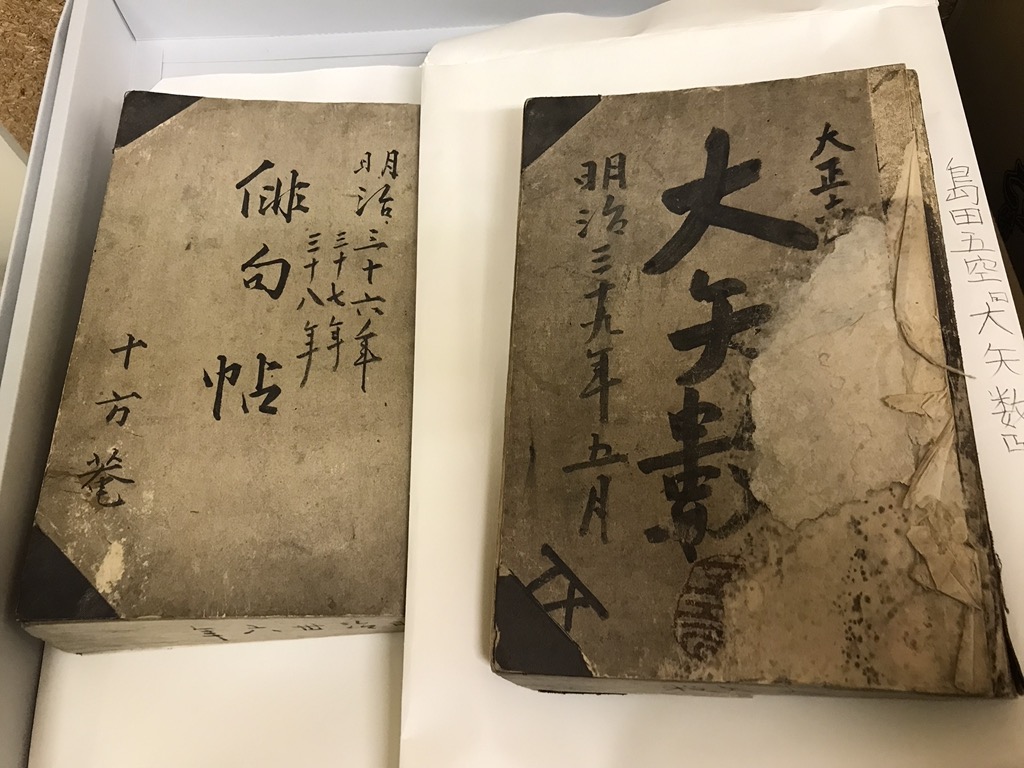 明治三十六年
三十七年
三十八年
俳句帖
十方菴
島田五空 大矢数
大正
大矢数
明治三十九年五月